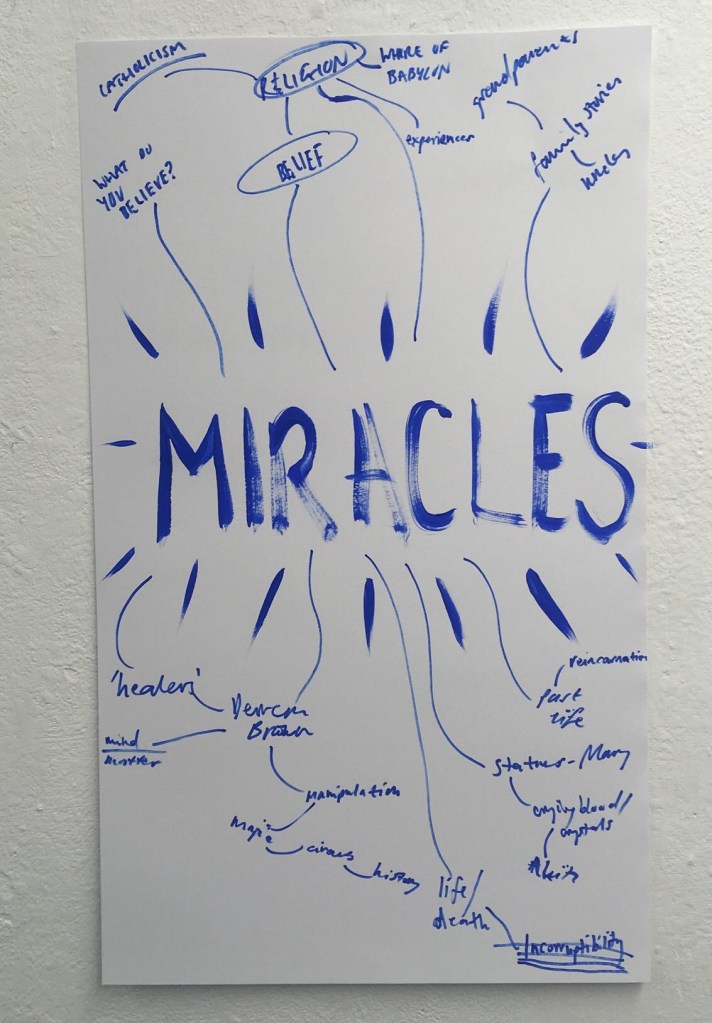 CATHOLICISM
RELIGION
WHORE OF
BABYLON
grandparents
experiences
family stories
uncles
WHAT DO
YOU
BELIEVE?
BELIEF
MIRACLES
'healers'
Derren
Brown
mind
matter
manipulation
magic
circus
history
life/
death
Incorruptibility
reincarnation
past
life
statues - Mary
crying blood/
crystals